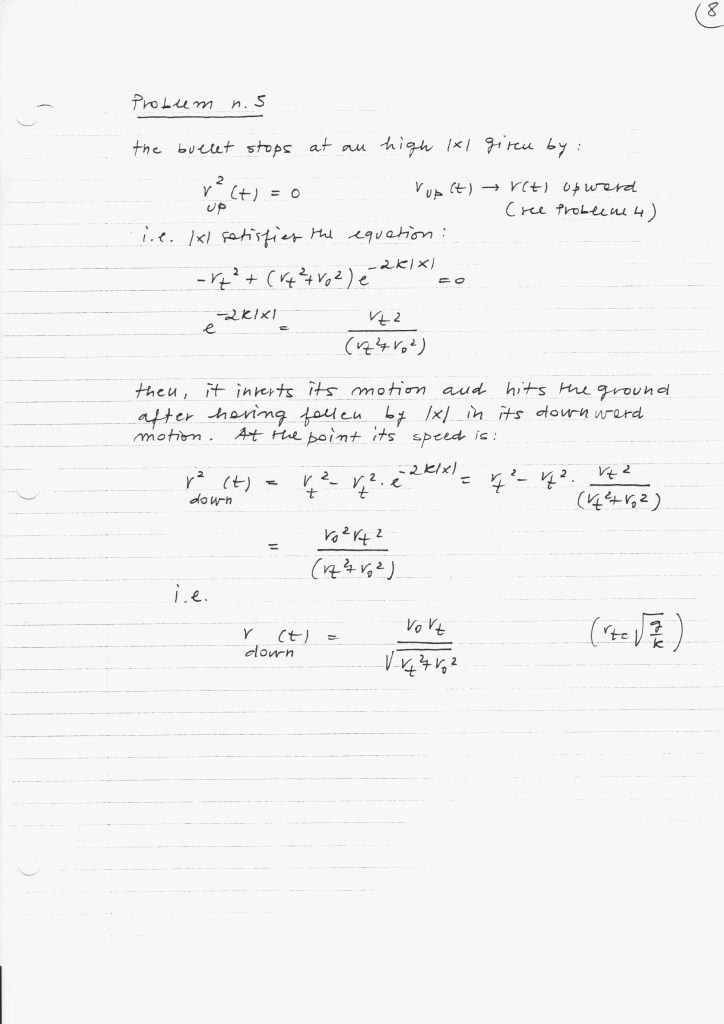 (8
Problem n. 5
the bullet stops at an high |x| given by :
v²_up (t) = 0 v_up (t) → v(t) upward
(see Problem 4)
i.e. |x| satisfies the equation :
-v_t² + (v_t² + v_0²) e^{-2k|x|} = 0
e^{-2k|x|} = v_t² / (v_t² + v_0²)
then, it inverts its motion and hits the ground
after having fallen by |x| in its downward
motion. At the point its speed is :
v²_down (t) = v_t² - v_t² · e^{-2k|x|} = v_t² - v_t² · v_t² / (v_t² + v_0²)
= v_0² v_t² / (v_t² + v_0²)
i.e.
v_down (t) = v_0 v_t / √(v_t² + v_0²) (v_t = √(g/k))